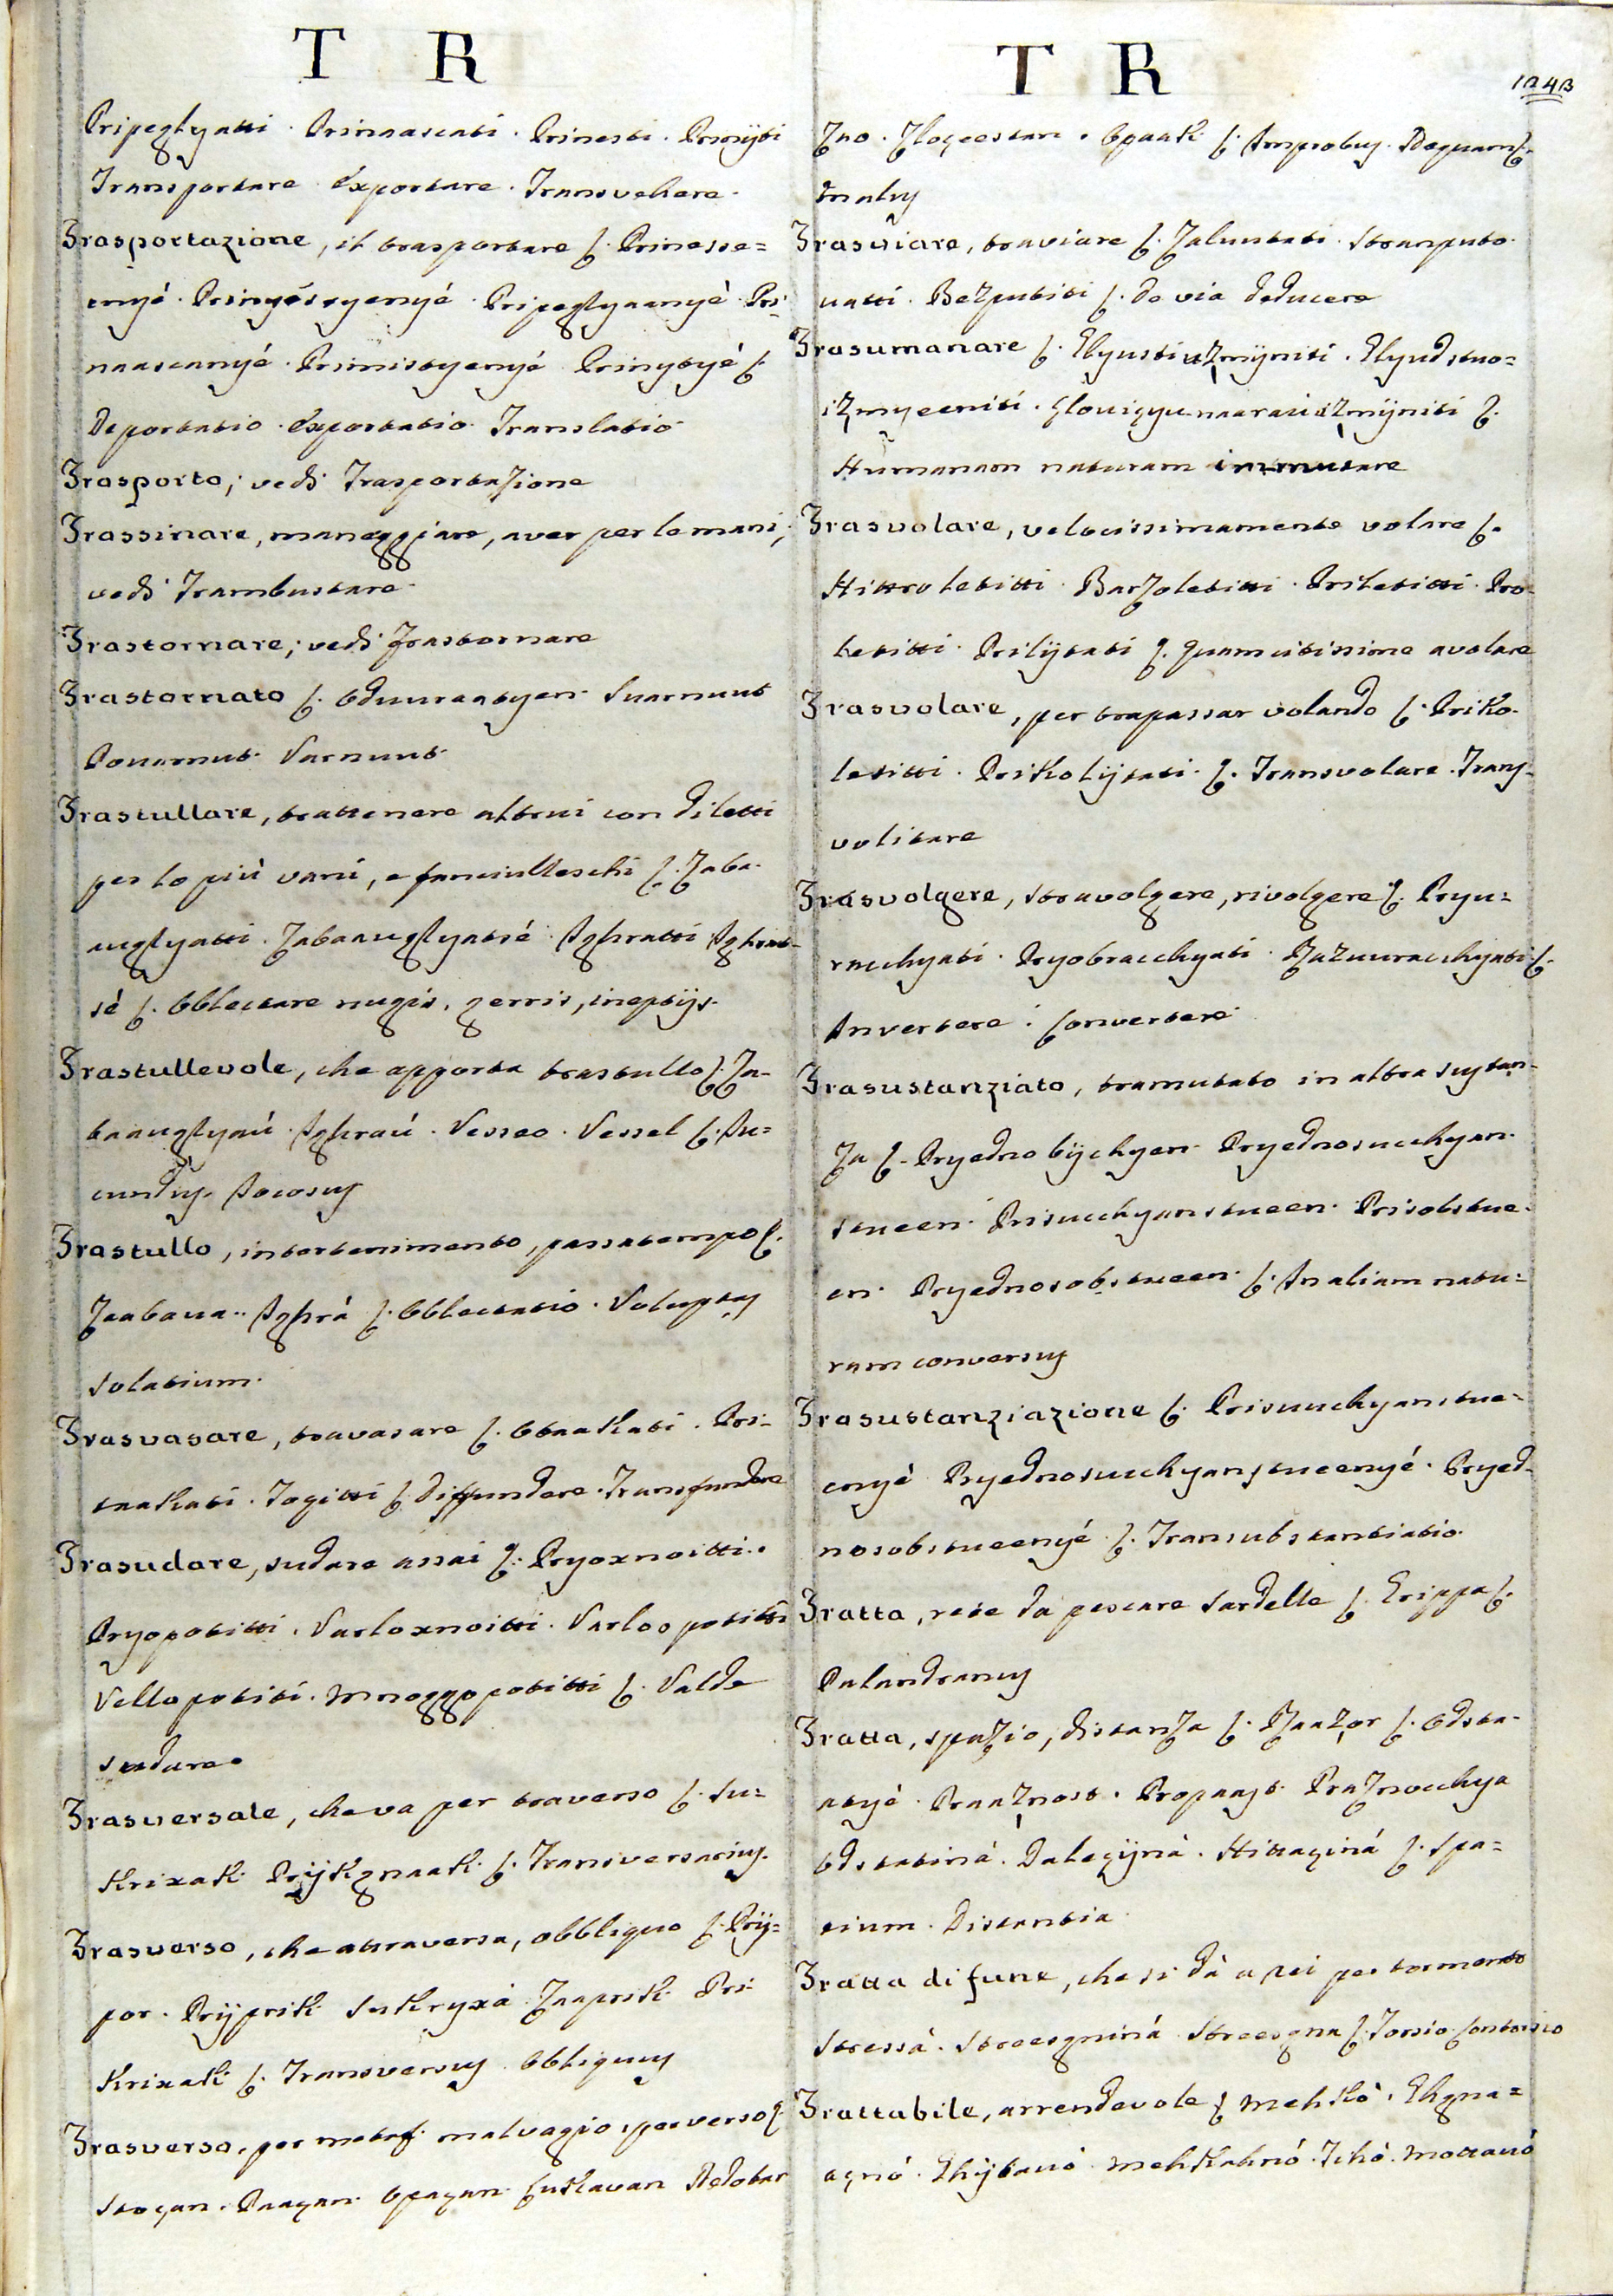 T R
Pripeglyatti. Prinaascati. Prinesti. Prinijti
Transportare. Exportare. Transvehere.
Trasportazione, il trasportare ſ. Prinesse=
enyé. Pripeglyaanyé. Pri=
naascanyé. Prinistyenyé. Prinytyé ſ.
Deportatio. Exportatio. Translatio
Trasporto; vedi Trasportazione
Trassinare, maneggiare, aver per le mani;
vedi Trambustare.
Trastornare; vedi Frastornare
Trastornato ſ. Oduuraatyen. Suarnuut
Pouarnut. Varnuut.
Trastullare, trattenere altrui con diletti
per lo più vani, e fanciulleschi ſ. Zaba-
auglyatti. Zabaauglyatsé. Ighratti. Ighrat-
sé ſ. Oblectare nugis, gerris, ineptijs.
Trastullevole, che apporta trastullo ſ. Za-
baauglyaú. Ighraú. Vesseo. Vessel ſ. Iu=
cundus. Iocosus
Trastullo, intertenimento, passatempo ſ.
Zaabaua. Ighrá ſ. Oblectatio. Voluptas
Solatium.
Trasvasare, travasare ſ. Otaakati. Pri-
taakati. Togitti ſ. Diffundere. Transfundere
Trasudare, sudare assai ſ. Pryoxnoitti.
Pryopotitti. Varloxnoitti. Varloopotitti
Vellopotiti. Mnoggopotitti ſ. Valde
sudare
Trasversale, che va per traverso ſ. Su=
krixak. ſ. Transversarius.
Trasverso, che attraversa, obbliquo ſ. Prij=
por. Prijprik. Sukryxa. Zaaprik. Pri-
krixak ſ. Transversus. Obliquus
Trasverso, per metaf. malvagio, perverso ſ.
Opaçan. Lukavan. Nedobar
T R
1243
Zao. Zloçeestan. Opaak ſ. Improbus. Nequam ſ.
malus
Trasviare, traviare ſ. Zaluutati. Stranputo-
uatti. Bezputiti ſ. De via deducere
Trasumanare ſ. Glyudstuo=
ſ.
Humanam naturam immutare
Trasvolare, velocissimamente volare ſ.
Hittroletitti. Barzoletitti. Priletitti. Pro-
letitti. Prilijtati ſ. Quamcitissime avolare
Trasvolare, per trapassar volando ſ. Priko-
letitti. Prikolijtati. ſ. Transvolare. Trans-
volitare
Trasvolgere, stravolgere, rivolgere ſ. Pryu=
racchyati. Pryobracchyati. Razuuracchyati ſ.
Invertere. Convertere
Trasustanziato, tramutato in altra sustan-
za ſ. Pryednobijchyen. Pryednosucchyan-
stueen. Prisucchyanstueen. Prisobstue-
en. Pryednosobstueen ſ. In aliam natu=
ram conversus
Trasustanziazione ſ. Prisucchyanstue-
enyé. Pryednosucchyanstueenyé. Pryed-
nosobstueenyé ſ. Transubstantiatio.
Tratta, rete da pescare sardelle ſ. Grippa ſ.
Palandranus
Tratta, spazio, distanza ſ. Raazor ſ. Odsta-
atyé. Praaznost. Propaast. Praznocchya
Odstatiná. Daleçijná. Hittaçiná ſ. Spa=
tium. Distantia.
Tratta di fune, che si dà a rei per tormento
ſ. Torsio. Contorsio
Trattabile, arrendevole ſ. Mehkó. Ghgna=
agnó. Ghijbauó. Mehkahnó. Tihó. Mottauó